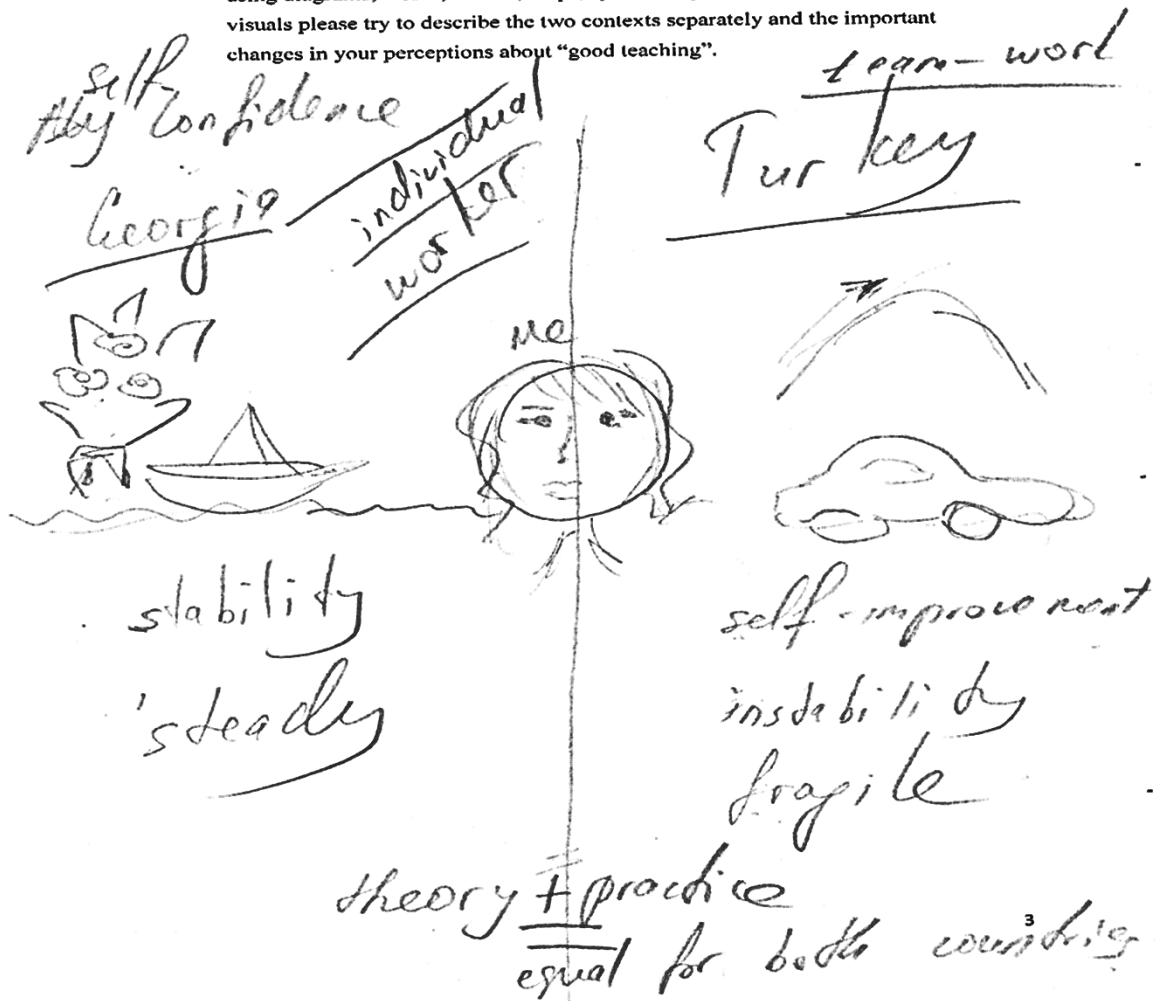 visuals please try to describe the two contexts separately and the important
changes in your perceptions about “good teaching”.
self-
confidence
Georgia
individual
worker
team-work
Turkey
Me
stability
'steady
self-improvement
instability
fragile
theory + practice
equal for both countries
3